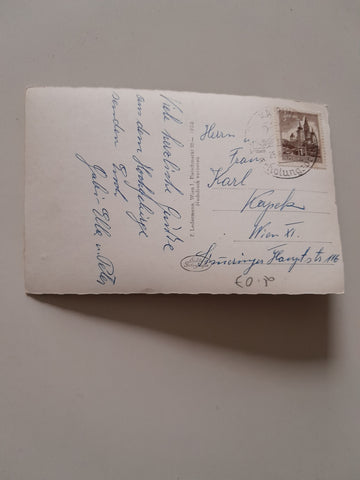 Viele herzliche Grüße
aus dem Hochgebirge
senden
Gabi Elle u. Peter
P. Ledermann, Wien I, Fleischmarkt 20 — 1958
Nachdruck verboten
Herrn u.
Frau
Karl
Kapek
Wien XI.
Simmeringer Hauptstr 116
€ 0.